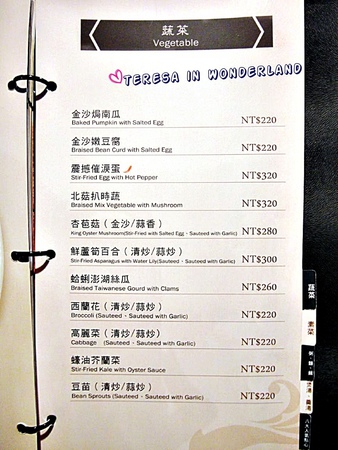 蔬菜
Vegetable
TERESA IN WONDERLAND
金沙焗南瓜
Baked Pumpkin with Salted Egg
NT$220
金沙嫩豆腐
Braised Bean Curd with Salted Egg
NT$220
震撼催淚蛋
Stir-Fried Egg with Hot Pepper
NT$320
北菇扒時蔬
Braised Mix Vegetable with Mushroom
NT$320
杏苞菇（金沙/蒜香）
King Oyster Mushroom(Stir-Fried with Salted Egg、Sauteed with Garlic)
NT$280
鮮蘆筍百合（清炒/蒜炒）
Stir-Fried Asparagus with Water Lily(Sauteed、Sauteed with Garlic)
NT$300
蛤蜊澎湖絲瓜
Braised Taiwanese Gourd with Clams
NT$260
西蘭花（清炒/蒜炒）
Broccoli (Sauteed、Sauteed with Garlic)
NT$220
高麗菜（清炒/蒜炒）
Cabbage (Sauteed、Sauteed with Garlic)
NT$220
蠔油芥蘭菜
Stir-Fried Kale with Oyster Sauce
NT$220
豆苗（清炒/蒜炒）
Bean Sprouts (Sauteed、Sauteed with Garlic)
NT$220
蔬菜
素菜